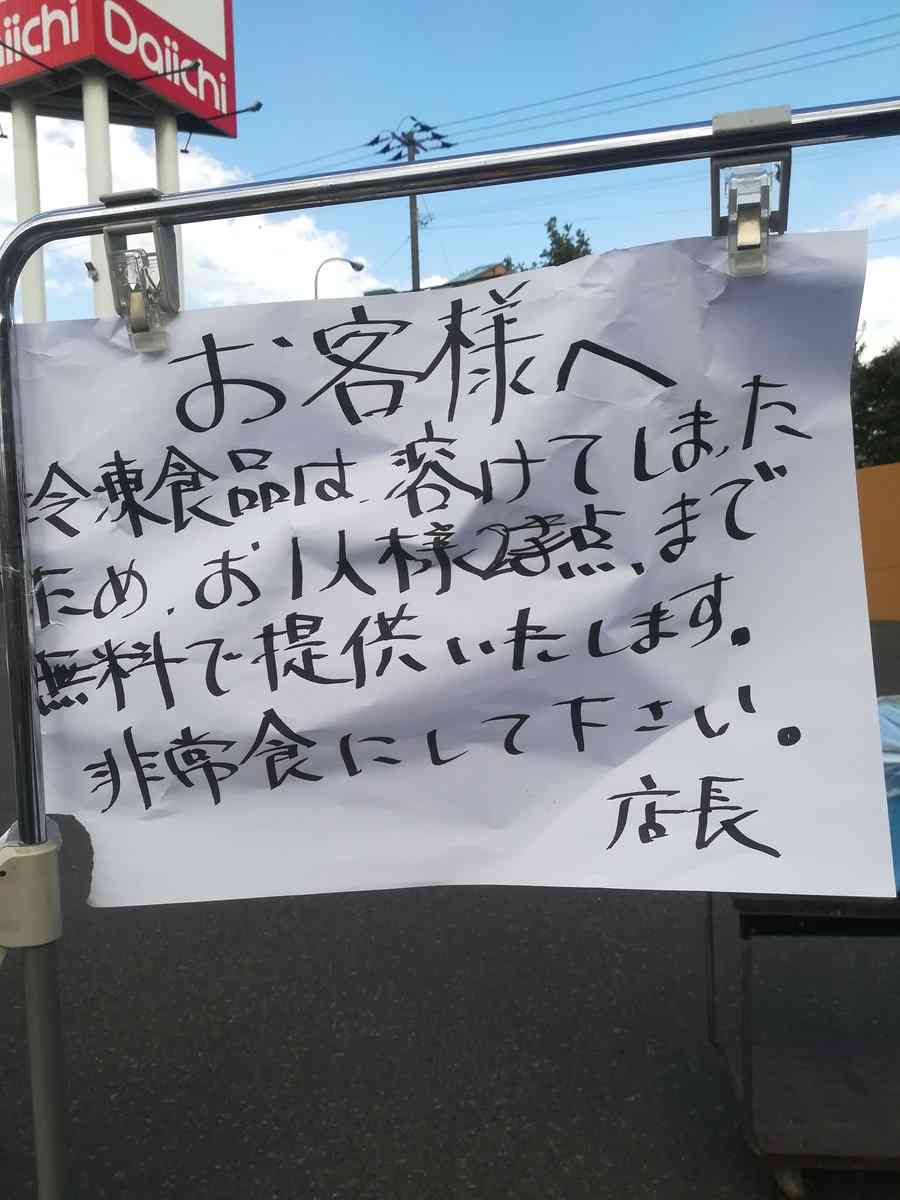 Daiichi
お客様へ
冷凍食品は、溶けてしまった
ため、お1人様2点、まで
無料で提供いたします。
非常食にして下さい。
店長